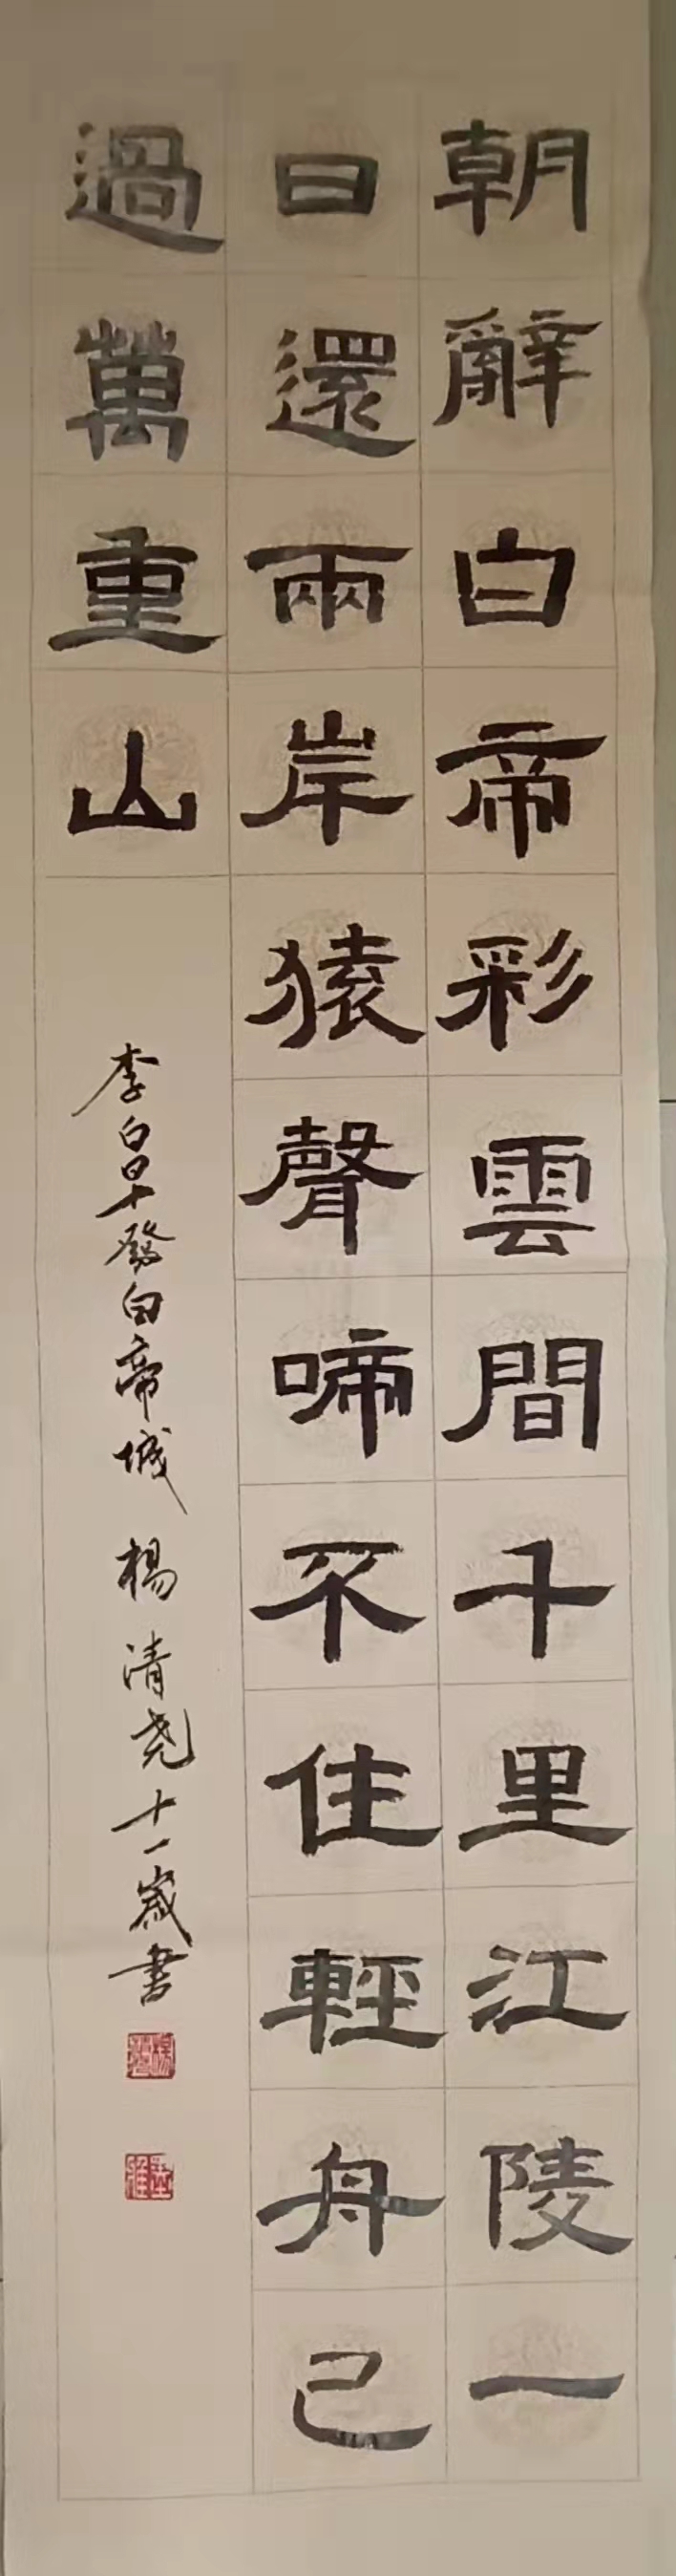 朝辭白帝彩雲間千里江陵一
日還兩岸猿聲啼不住輕舟已
過萬重山
李白早發白帝城 楊清尧十一歲書